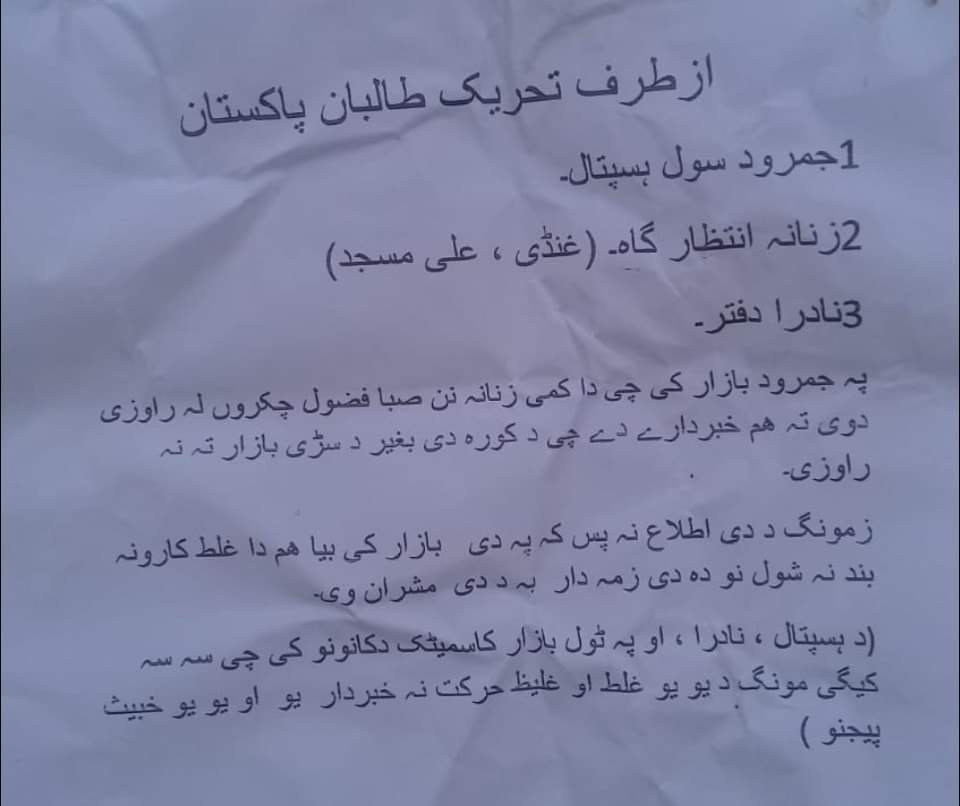 از طرف تحریک طالبان پاکستان
1جمرود سول ہسپتال۔
2زنانہ انتظار گاہ۔ (غنڈی ، علی مسجد)
3نادرا دفتر۔
پہ جمرود بازار کی چی دا کمی زنانہ نن صبا فضول چکروں لہ راوزی
دوی تہ ھم خبردارے دے چی د کورہ دی بغیر د سڑی بازار تہ نہ
راوزی۔
زمونگ د دی اطلاع نہ پس کہ پہ دی بازار کی بیا ھم دا غلط کارونہ
بند نہ شول نو دہ دی زمہ دار بہ د دی مشران وی۔
(د ہسپتال ، نادرا ، او پہ ٹول بازار کاسمیٹک دکانونو کی چی سہ سہ
کیگی مونگ د یو یو غلط او غلیظ حرکت نہ خبردار یو او یو یو خبیث
پیجنو )